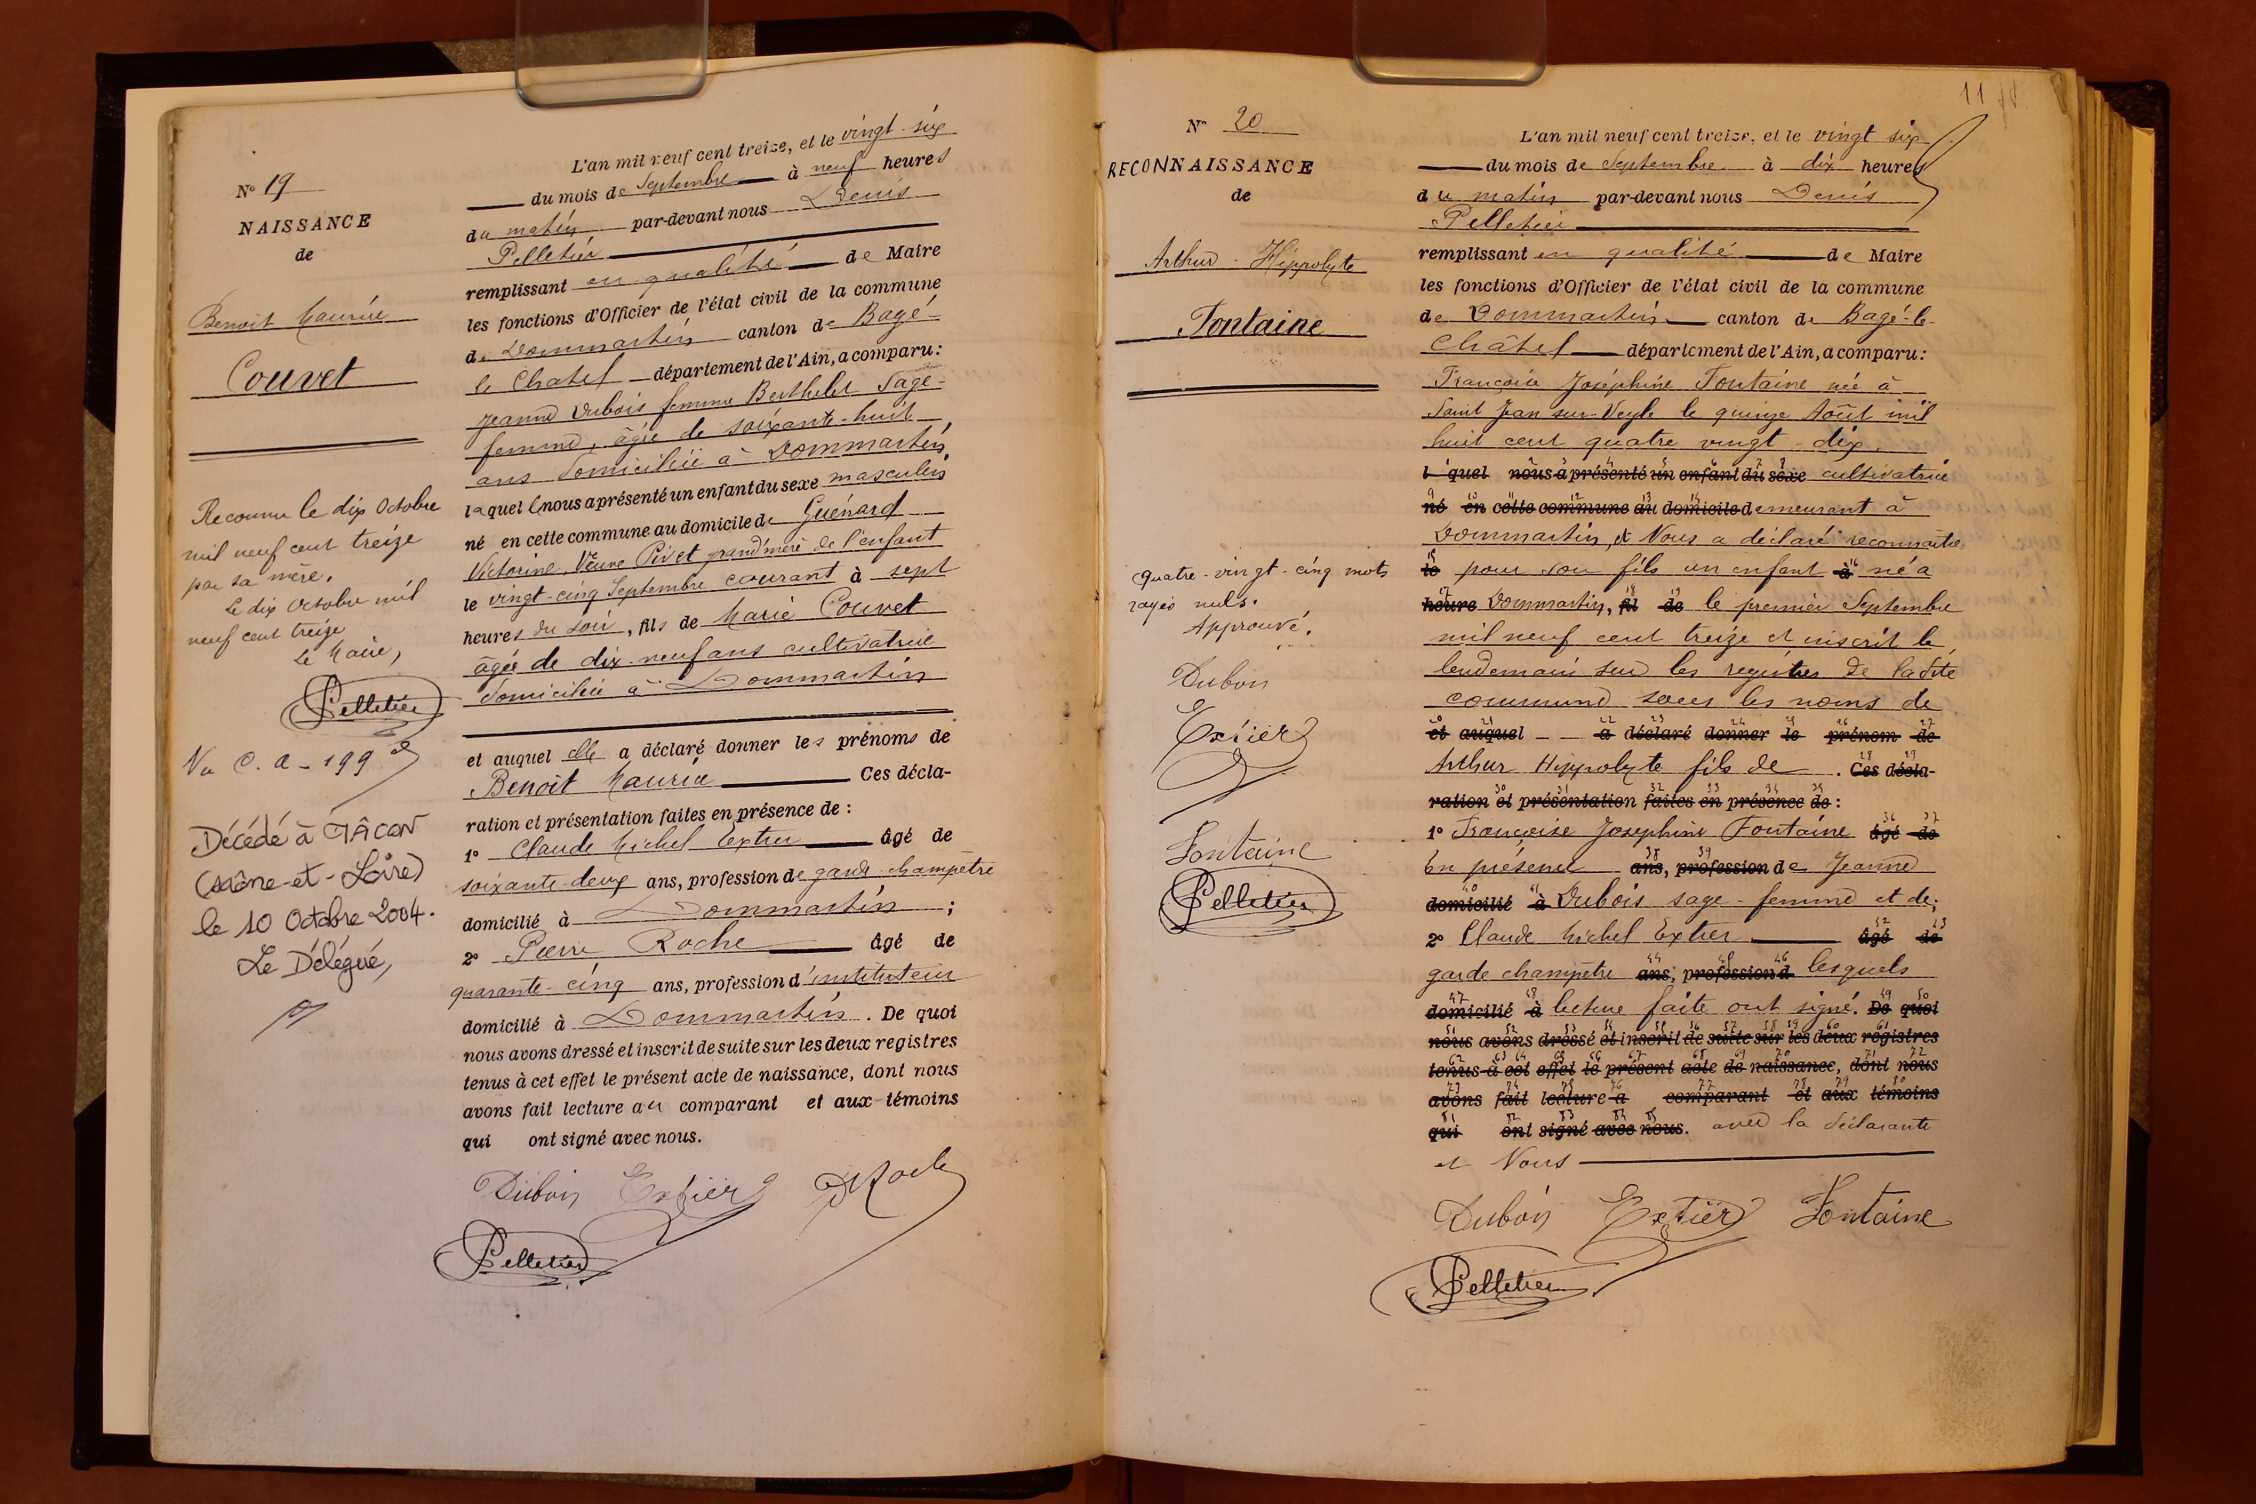 N° 19
NAISSANCE
de
Benoit Maurice
Couvet
Reconnu le dix Octobre
mil neuf cent treize
par sa mère.
Le dix Octobre mil
neuf cent treize
Le Maire,
Pelletier
Décédé à MÂCON
(Saône-et-Loire)
le 10 Octobre 2004.
Le Délégué,
L'an mil neuf cent treize, et le vingt-six
du mois de Septembre à neuf heures
du matin par-devant nous Denis
Pelletier
remplissant en qualité de Maire
les fonctions d'Officier de l'état civil de la commune
de Dommartin canton de Bagé-
le Chatel département de l'Ain, a comparu:
Jeanne Dubois femme Berthelet Sage-
femme, âgée de soixante-huit
ans domiciliée à Dommartin
laquelle nous a présenté un enfant du sexe masculin
né en cette commune au domicile de Guénard
Victorine, Veuve Pivet grand'mère de l'enfant
le vingt-cinq Septembre courant à sept
heures du soir, fils de Marie Couvet
âgée de dix-neuf ans cultivatrice
domiciliée à Dommartin
et auquel elle a déclaré donner les prénoms de
Benoit Maurice Ces décla-
ration et présentation faites en présence de :
1° Claude Michel Extier âgé de
soixante-deux ans, profession de garde-champêtre
domicilié à Dommartin ;
2° Pierre Roche âgé de
quarante-cinq ans, profession d'instituteur
domicilié à Dommartin. De quoi
nous avons dressé et inscrit de suite sur les deux registres
tenus à cet effet le présent acte de naissance, dont nous
avons fait lecture au comparant et aux témoins
qui ont signé avec nous.
Dubois Extier Roche
Pelletier
11
N° 20
RECONNAISSANCE
de
Arthur-Hippolyte
Fontaine
quatre-vingt-cinq mots
rayés nuls.
Approuvé.
Dubois
Extier
Fontaine
Pelletier
L'an mil neuf cent treize, et le vingt six
du mois de Septembre à dix heures
du matin par-devant nous Denis
Pelletier
remplissant en qualité de Maire
les fonctions d'Officier de l'état civil de la commune
de Dommartin canton de Bagé-le-
Châtel département de l'Ain, a comparu:
Françoise Joséphine Fontaine née à
Saint Jean sur-Veyle le quinze Août mil
huit cent quatre vingt-dix.
l quel nous a présenté un enfant du sexe cultivatrice
né en cette commune au domicile demeurant à
Dommartin, et Nous a déclaré reconnaître
le pour son fils un enfant à né a
heure Dommartin, fil de le premier Septembre
mil neuf cent treize et inscrit le
lendemain sur les registres de ladite
commune sous les noms de
et auquel a déclaré donner le prénom de
Arthur Hippolyte fils de . Ces décla-
ration et présentation faites en présence de :
1° Françoise Josephine Fontaine âgé de
En présence ans, profession de Jeanne
domicilié à Dubois sage-femme et de;
2° Claude Michel Extier âgé de
garde champêtre ans, profession d lesquels
domicilié à lecture faite ont signé. De quoi
nous avons dressé et inscrit de suite sur les deux registres
tenus à cet effet le présent acte de naissance, dont nous
avons fait lecture a comparant et aux témoins
qui ont signé avec nous. avec la déclarante
et Nous
Dubois Extier Fontaine
Pelletier